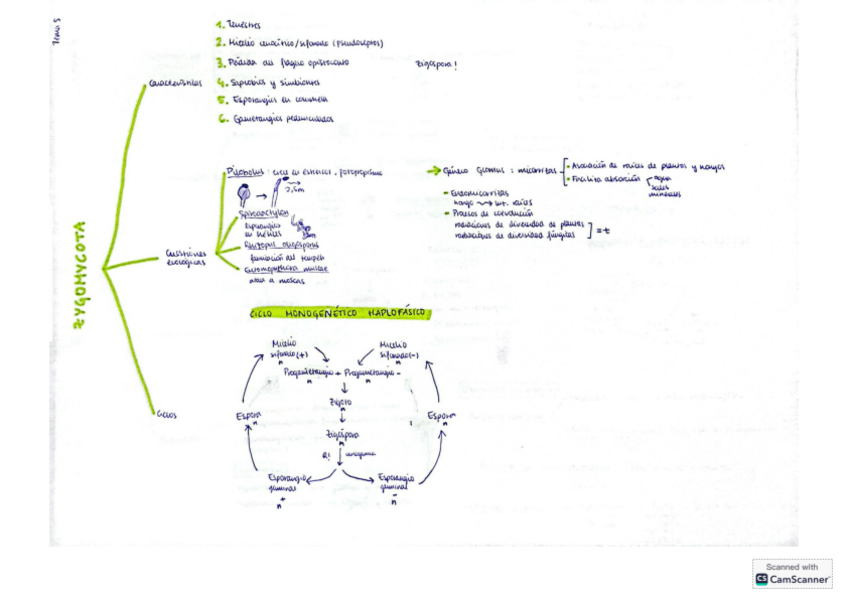 Tema 5
ZYGOMYCOTA
Características
1. Terrestres
2. Micelio cenocítico/sifonado (pseudoseptos)
3. Pérdida del flagelo opistoconto
Zigóspora!
4. Saprobios y simbiontes
5. Esporangios en columela
6. Gametangios pedunculados
Cuestiones ecológicas
Pilobolus: crece en estiércol, fototropismo
2,5m
Spirodactylon
Esporangios
en hélices
Rhizopus oligosporus
formación del tempeh
Entomophthora muscae
ataca a moscas
→ Género Glomus: micorrizas
- Asociación de raíces de plantas y hongos
- Facilita absorción
agua
sales
minerales
- Endomicorrizas
hongo → int. raíces
- Proceso de coevolución
relaciones de diversidad de plantas
relaciones de diversidad fúngicas
= t
Ciclos
CICLO MONOGENÉTICO HAPLOFÁSICO
Micelio
sifonado (+)
n
Micelio
sifonado (-)
n
Progametangio + Progametangio -
n n
Zigoto
n
Zigóspora
n
R!
Espora
n
Espora
n
Esporangio
germinal
+
n
Esporangio
germinal
-
n
Scanned with
CS CamScanner